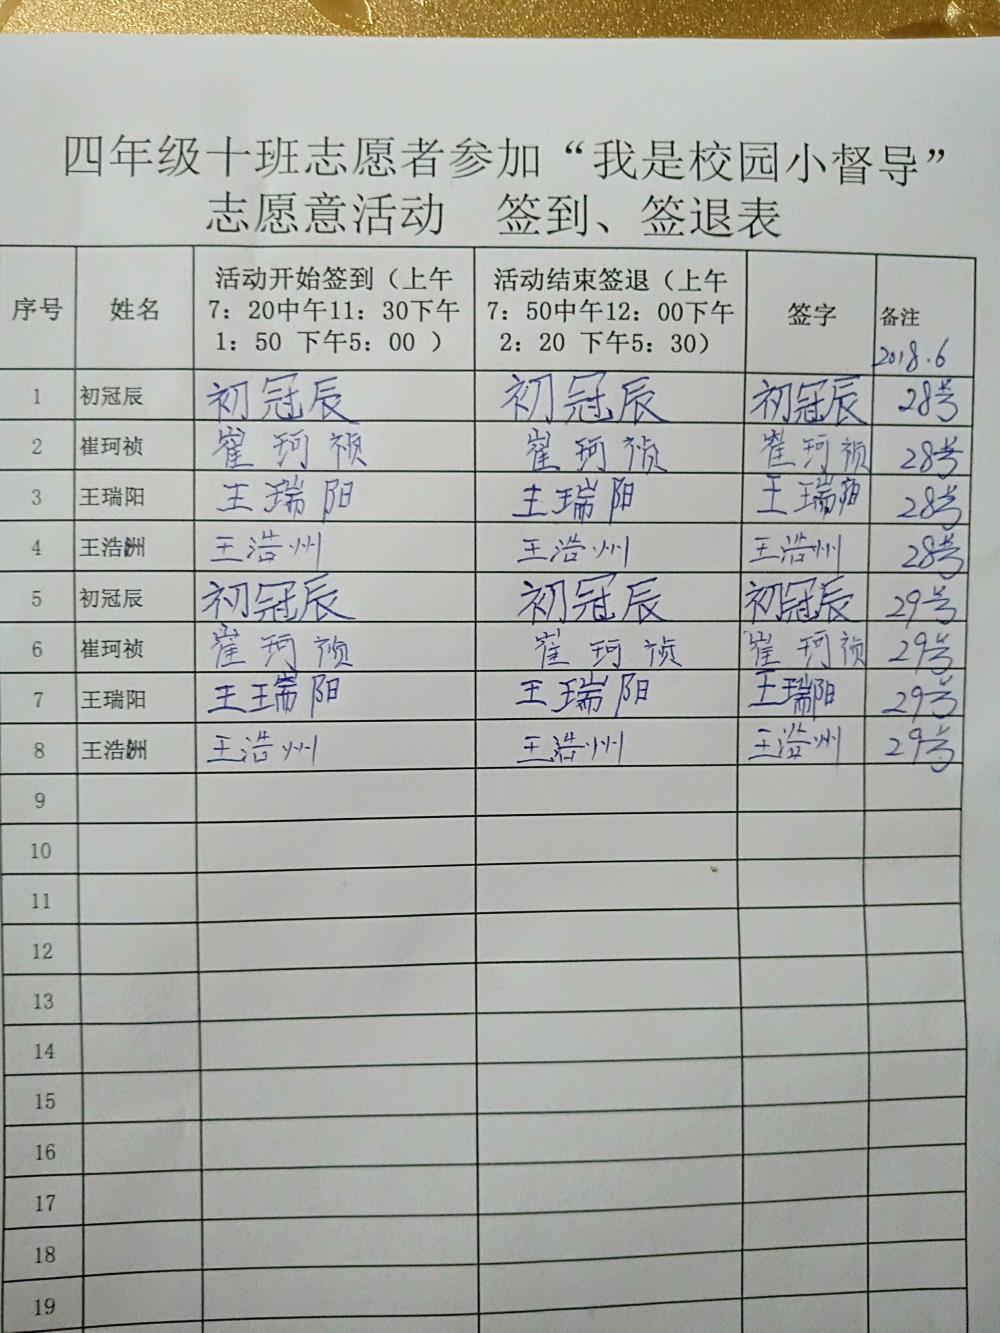 四年级十班志愿者参加“我是校园小督导”
志愿意活动 签到、签退表
序号 姓名 活动开始签到（上午7：20中午11：30下午1：50 下午5：00 ） 活动结束签退（上午7：50中午12：00下午2：20 下午5：30） 签字 备注 2018.6
1 初冠辰 初冠辰 初冠辰 初冠辰 28号
2 崔珂祯 崔珂祯 崔珂祯 崔珂祯 28号
3 王瑞阳 王瑞阳 王瑞阳 王瑞阳 28号
4 王浩洲 王浩州 王浩州 王浩州 28号
5 初冠辰 初冠辰 初冠辰 初冠辰 29号
6 崔珂祯 崔珂祯 崔珂祯 崔珂祯 29号
7 王瑞阳 王瑞阳 王瑞阳 王瑞阳 29号
8 王浩洲 王浩州 王浩州 王浩州 29号
9
10
11
12
13
14
15
16
17
18
19